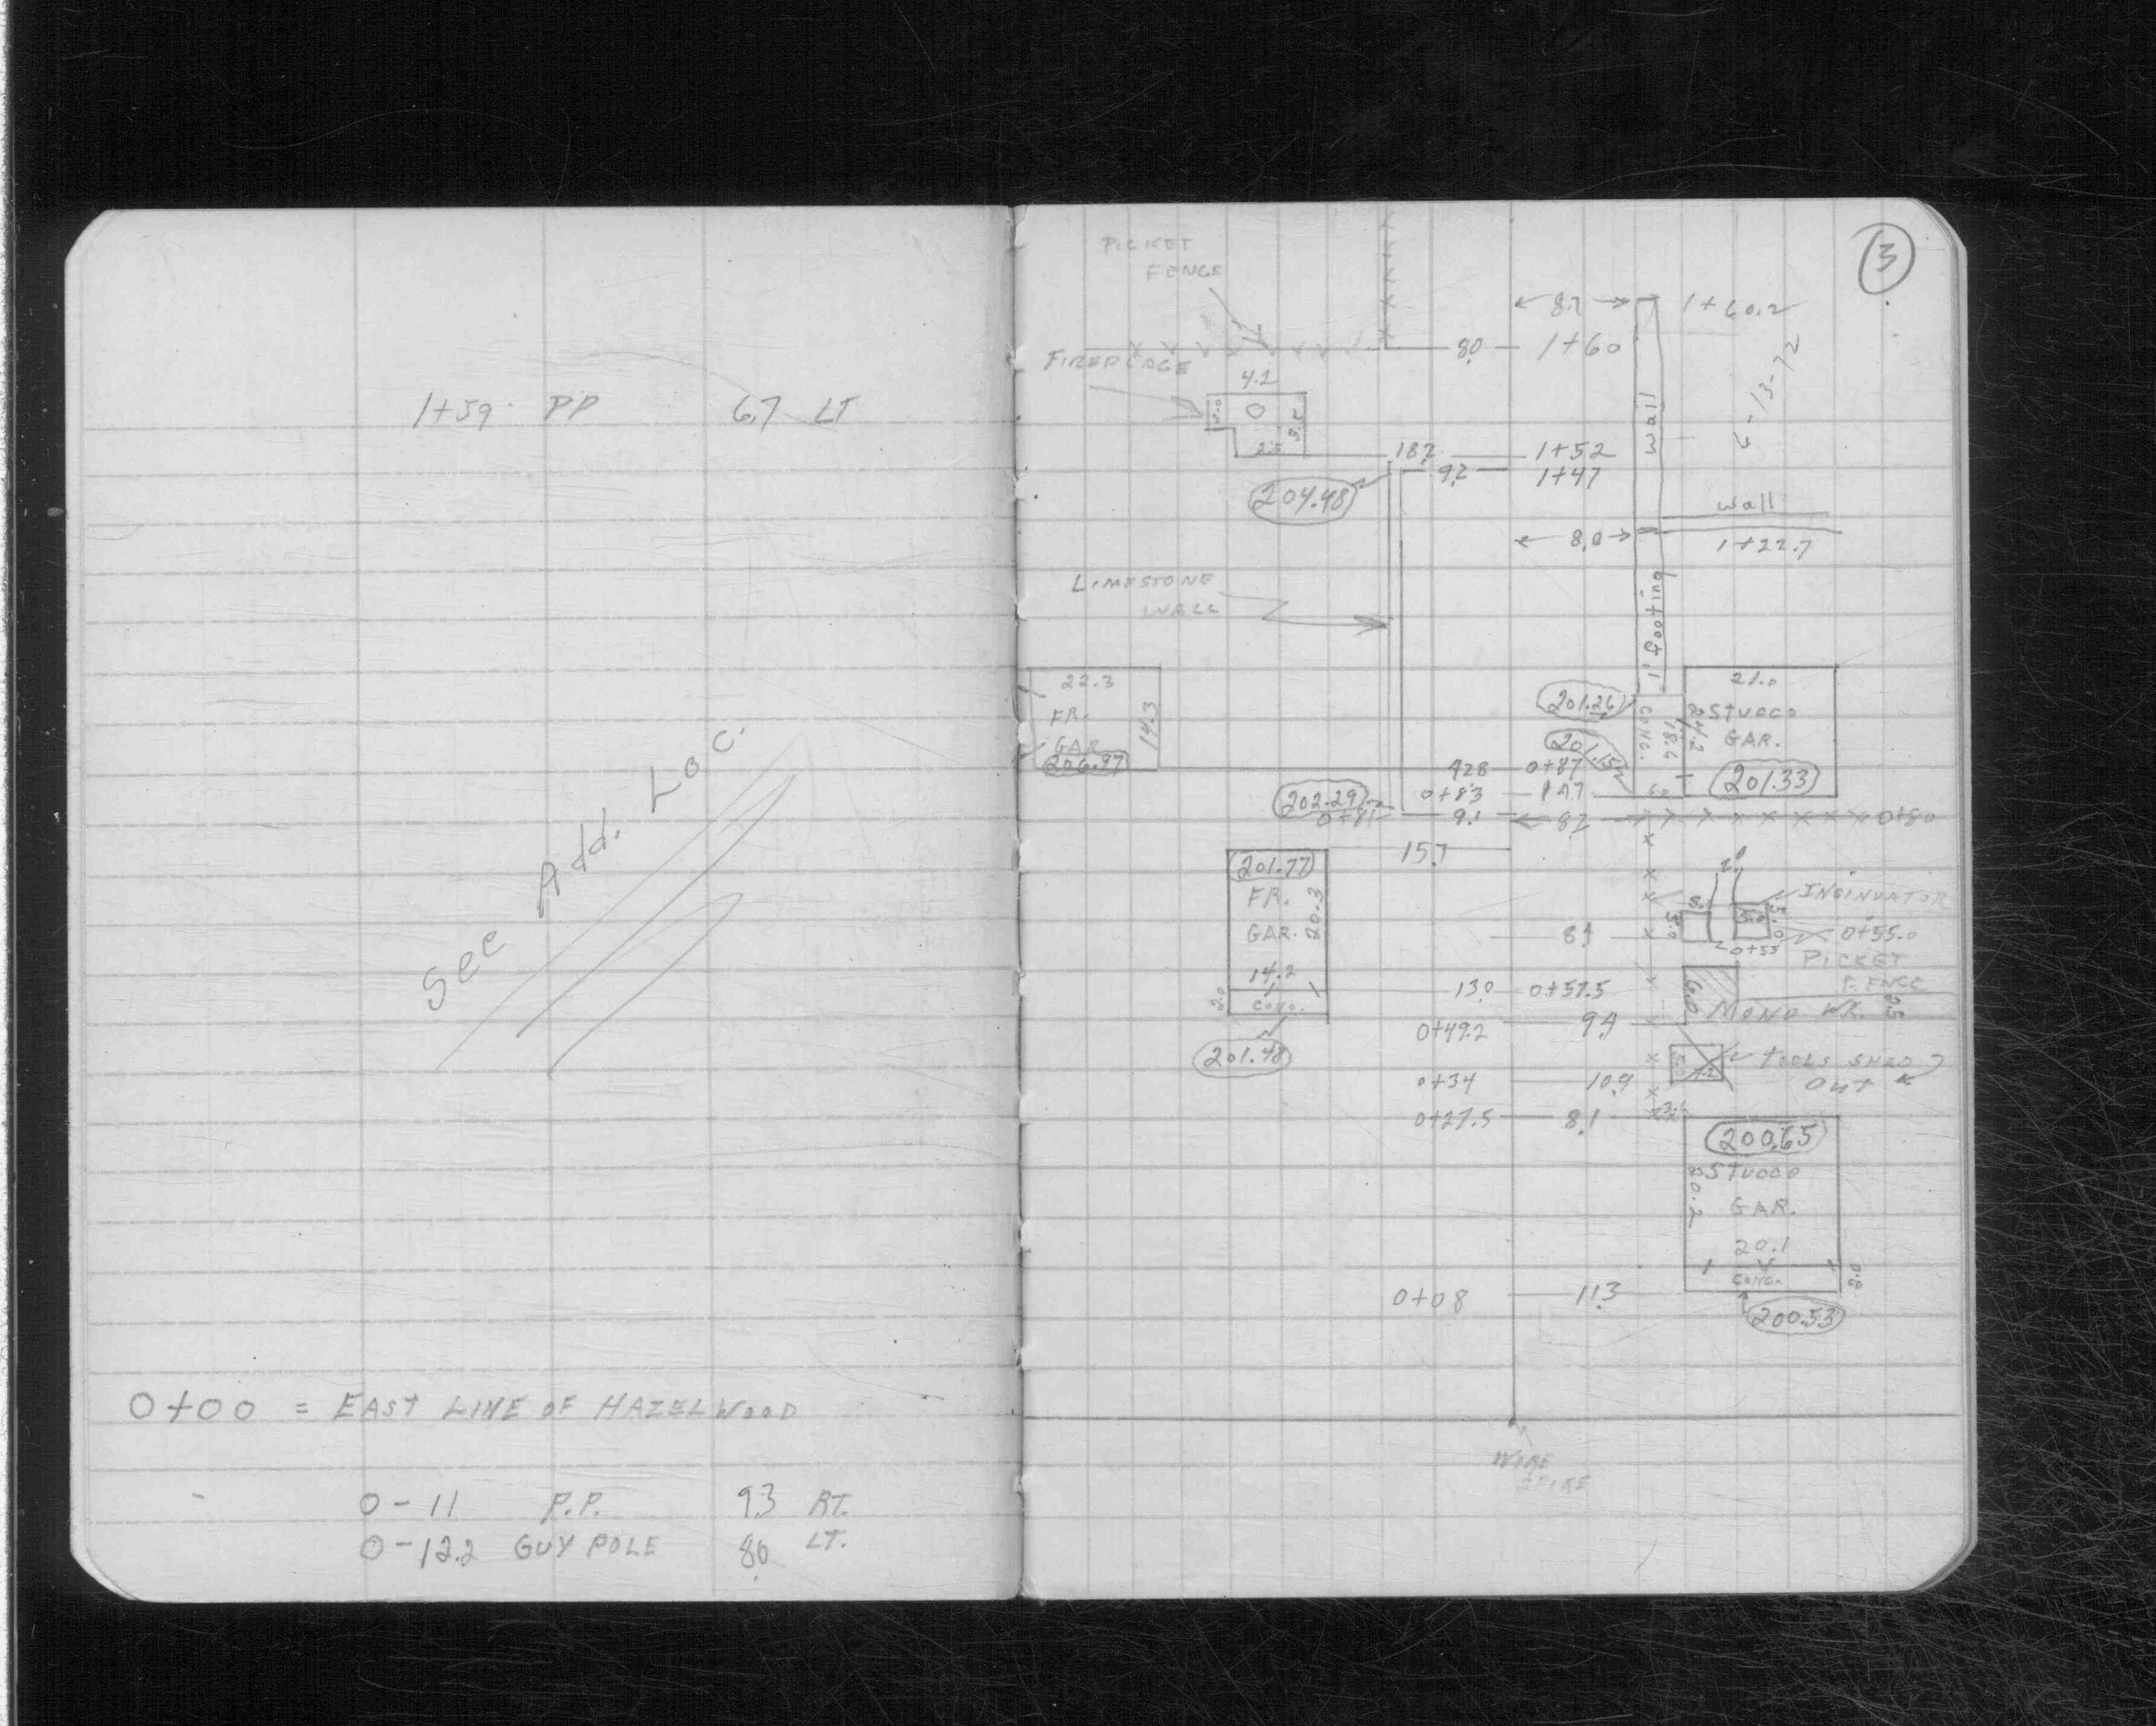 1+59 PP 6.7 LT
See Add. Loc.
0+00 = EAST LINE OF HAZELWOOD
0-11 P.P. 9.3 RT.
0-12.2 GUY POLE 8.0 LT.
3
PICKET
FENCE
8.7 1+60.2
8.0 1+60
FIREPLACE
4.2
3.5
2.5
wall
18.2 1+52
9.2 1+47
204.48
wall
8.0
1+22.7
LIMESTONE
WALL
1' footing
22.3
FR.
GAR.
14.3
206.97
201.26
201.15
CONC.
18.4
21.0
STUOCO
GAR.
24.2
201.33
42.8 0+87
0+83 14.7
202.29
0+81 9.1 8.2 0+80
15.7
201.77
FR.
GAR. 20.3
14.2
CONC.
2.0
201.48
INSINUATOR
5.0
0+55
0+55.0
PICKET
FENCE
13.0 0+57.5
6.0
0+49.2 9.4
TOOLS SHED
OUT
0+34 10.9
0+27.5 8.1
200.65
STUOCO
GAR.
20.2
20.1
CONC.
200.53
0+08 11.3
WIRE
SPIKE